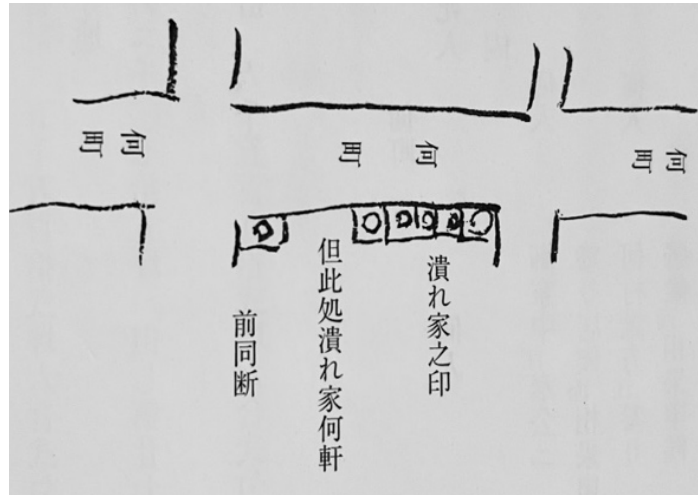 何町
何町
何町
潰れ家之印
但此処潰れ家何軒
前同断